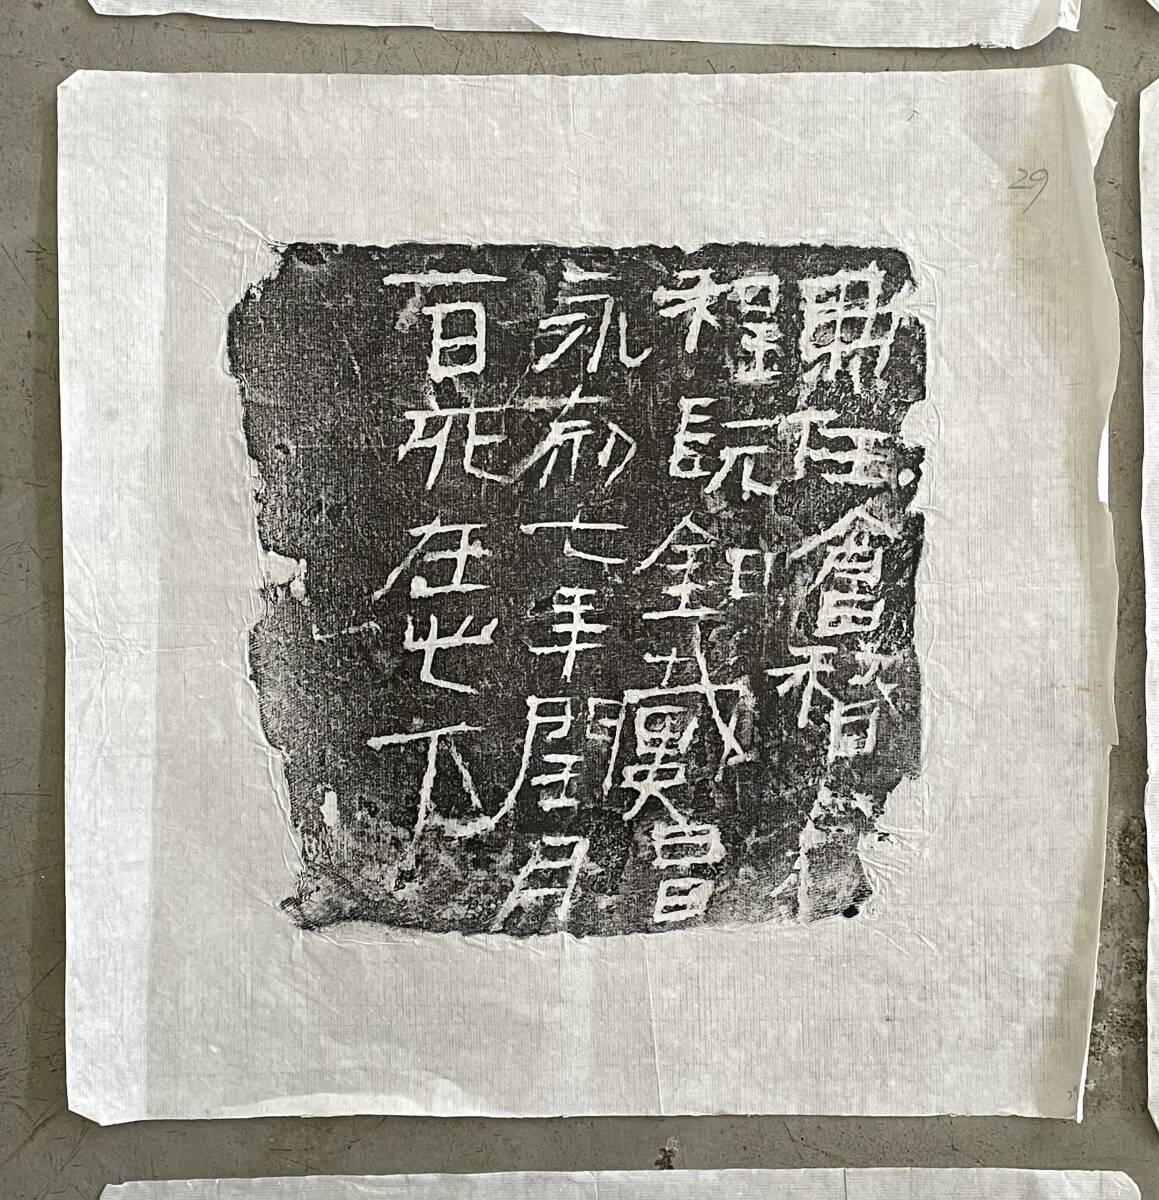 29
無任會稽
程髡鉗戴昌
永初七年閏月
一日死在此下